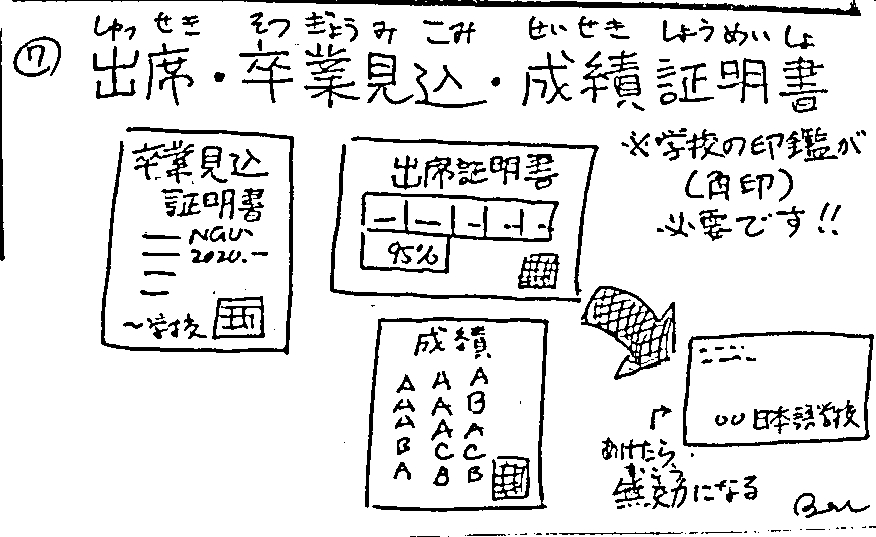 ⑦
しゅっ せき そつ ぎょう み こみ せいせき しょうめい しょ
出席・卒業見込・成績証明書
※学校の印鑑が
(角印)
必要です!!
卒業見込
証明書
NGU
2020.
〜学校
出席証明書
95%
成績
A A A
A A B
A A A
B C C
A B B
〇〇日本語学校
あけたら
むこう
無効になる